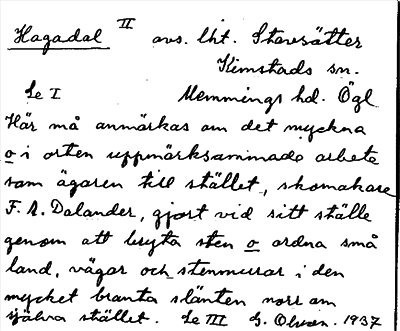 Hagadal II avs. lht. Stavsätter
Kimstads sn.
Se I Memmings hd. Ögl.
Här må anmärkas om det myckna
o i orten uppmärksammade arbete
som ägaren till stället, skomakare
F. A. Dalander, gjort vid sitt ställe
genom att bryta sten o ordna små
land, vägar och stenmurar i den
mycket branta slänten norr om
själva stället. Se III G. Olson. 1937